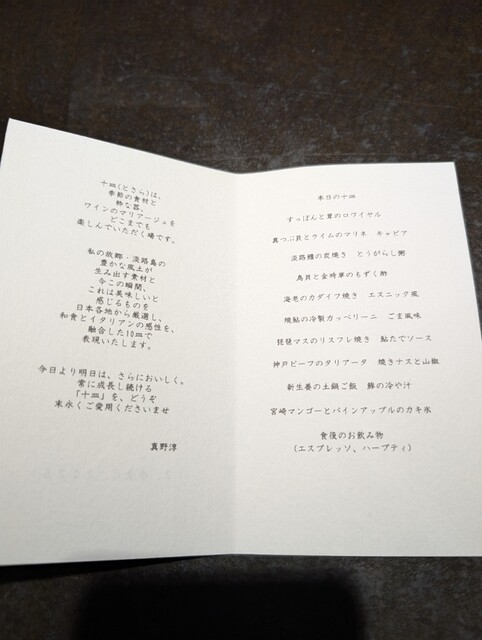 十皿(とさら)は、
季節の食材と
粋な器、
ワインのマリアージュを
どこまでも
楽しんでいただく場です。
私の故郷・淡路島の
豊かな風土が
生み出す素材と
今この瞬間、
これは美味しいと
感じるものを
日本各地から厳選し、
和食とイタリアンの感性を、
融合した10皿で
表現いたします。
今日より明日は、さらにおいしく。
常に成長し続ける
「十皿」を、どうぞ
末永くご愛用くださいませ
真野淳
本日の十皿
すっぽんと茸のロワイヤル
真つぶ貝とライムのマリネ キャビア
淡路鱧の炭焼き とうがらし粥
鳥貝と金時草のもずく酢
海老のカダイフ焼き エスニック風
焼鮎の冷製カッペリーニ ごま風味
琵琶マスのリスフレ焼き 鮎たでソース
神戸ビーフのタリアータ 焼きナスと山椒
新生姜の土鍋ご飯 鯵の冷や汁
宮崎マンゴーとパインアップルのカキ氷
食後のお飲み物
(エスプレッソ、ハーブティ)